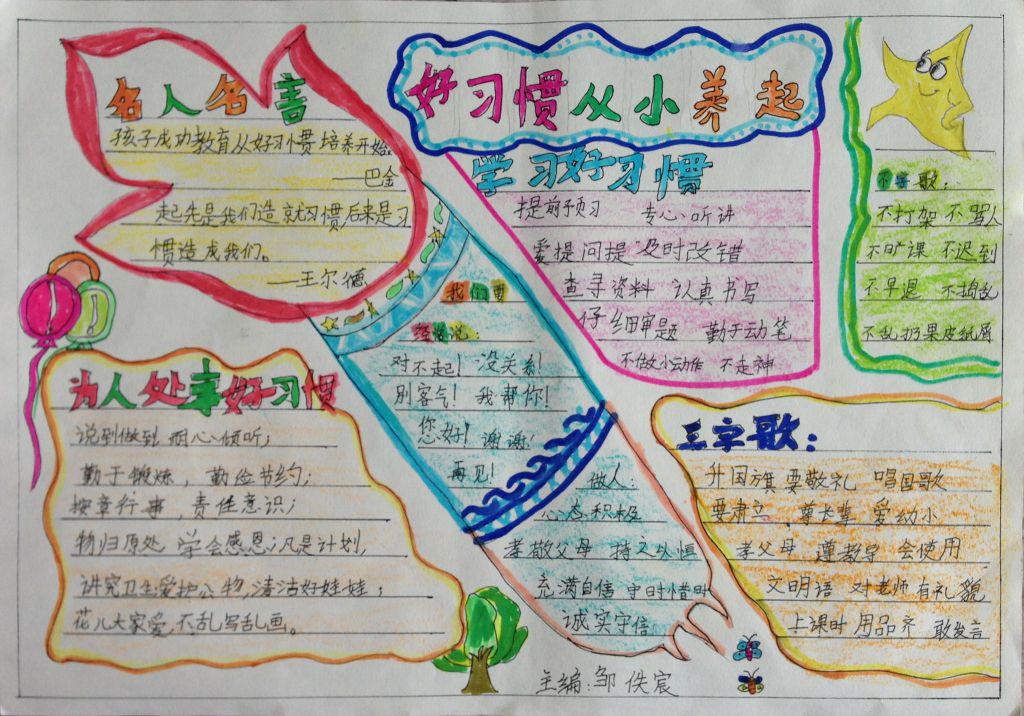 好习惯从小养起
名人名言
孩子成功教育从好习惯培养开始
——巴金
起先是我们造就习惯后来是习
惯造成我们。
——王尔德
学习好习惯
提前预习 专心听讲
爱提问提 及时改错
查寻资料 认真书写
仔细审题 勤于动笔
不做小动作 不走神
不字歌:
不打架 不骂人
不旷课 不迟到
不早退 不捣乱
不乱扔果皮纸屑
我们要
经常说:
对不起! 没关系!
别客气! 我帮你!
您好! 谢谢!
再见!
做人:
心态积极
孝敬父母 持之以惧
充满自信 守时惜时
诚实守信
为人处事好习惯
说到做到 耐心倾听;
勤于锻炼, 勤俭节约;
按章行事, 责任意识;
物归原处 学会感恩;凡是计划,
讲究卫生爱护公物,清洁好娃娃;
花儿大家爱,不乱写乱画。
三字歌:
升国旗 要敬礼 唱国歌
要肃立 尊长辈 爱幼小
孝父母 遵教导 会使用
文明语 对老师 有礼貌
上课时 用品齐 敢发言
主编:邹佚宸